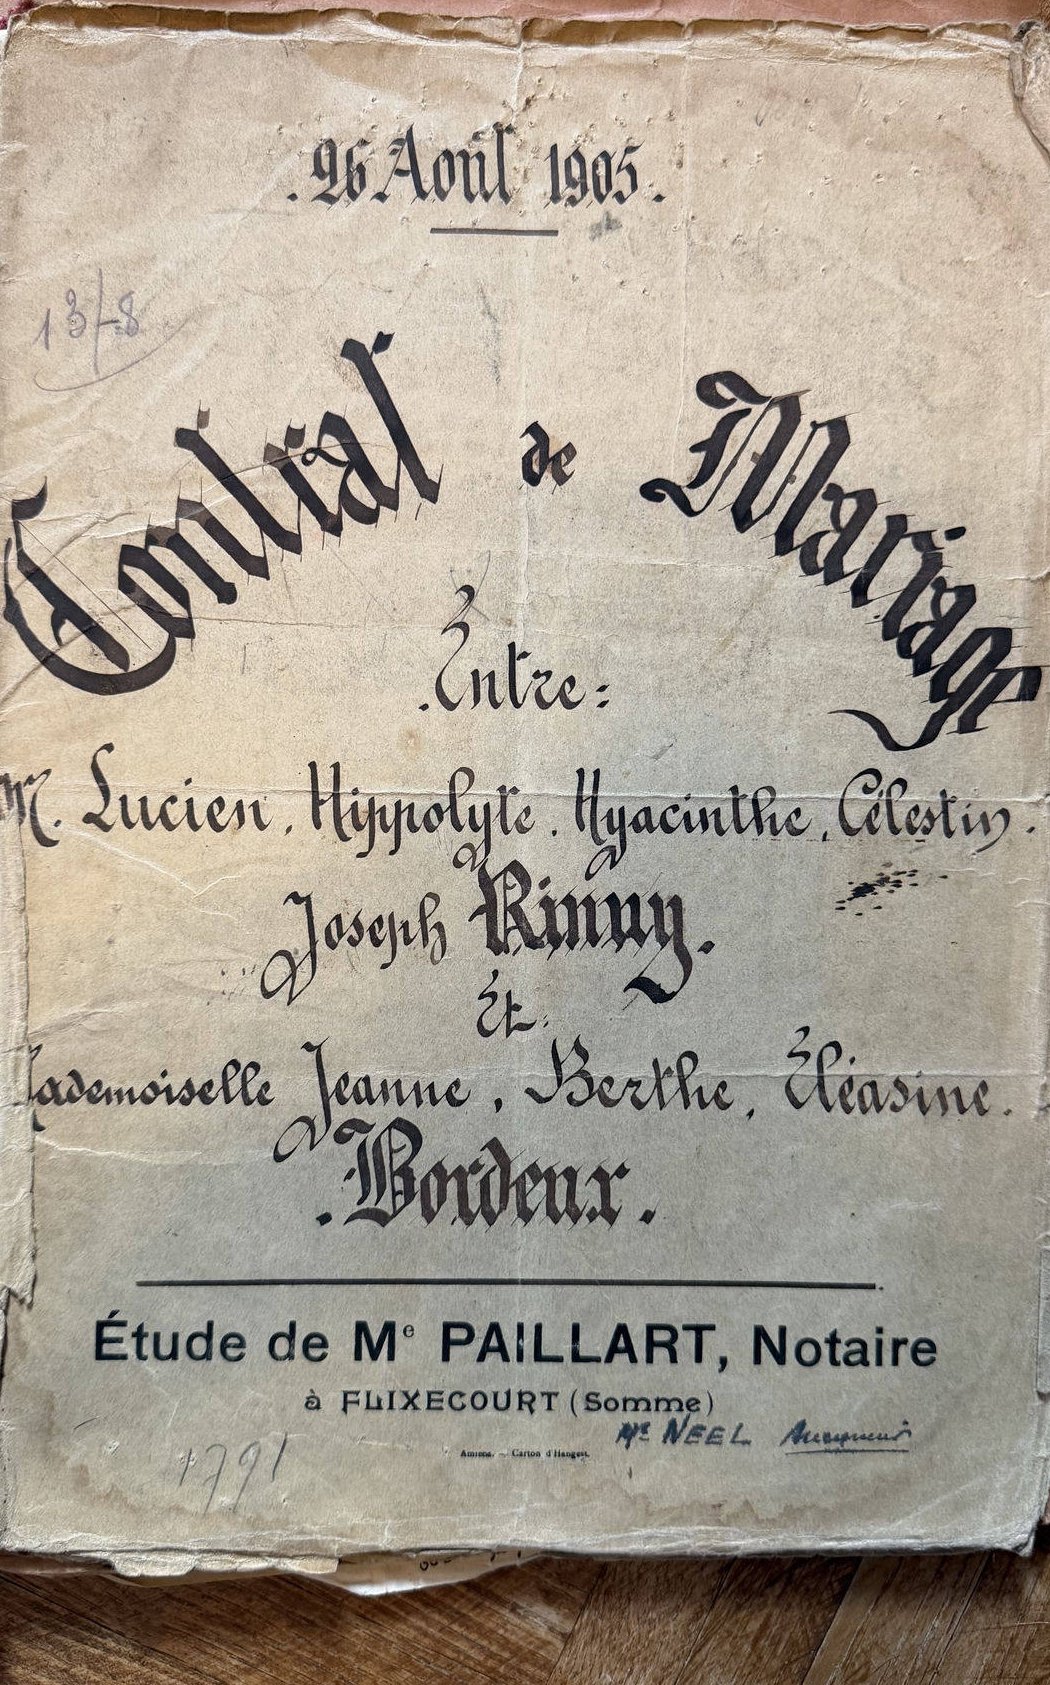 . 26 Août 1905 .
13/-8
Contrat de Mariage
. Entre :
M. Lucien, Hippolyte, Hyacinthe, Célestin,
Joseph
. Et .
Mademoiselle Jeanne, Berthe, Éléasine.
. Bordeux .
Étude de Me PAILLART, Notaire
à FLIXECOURT (Somme)
Me NEEL
Amiens. — Carton d'Hangest.
1791